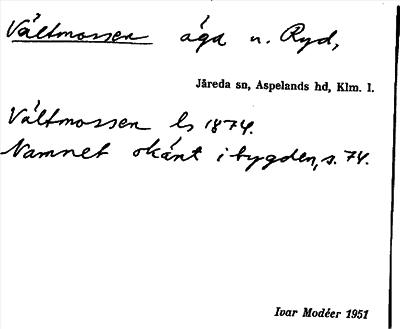 Vältmossen äga n. Ryd,
Järeda sn, Aspelands hd, Klm. l.
Vältmossen ls 1874.
Namnet okänt i bygden, s. 74.
Ivar Modéer 1951